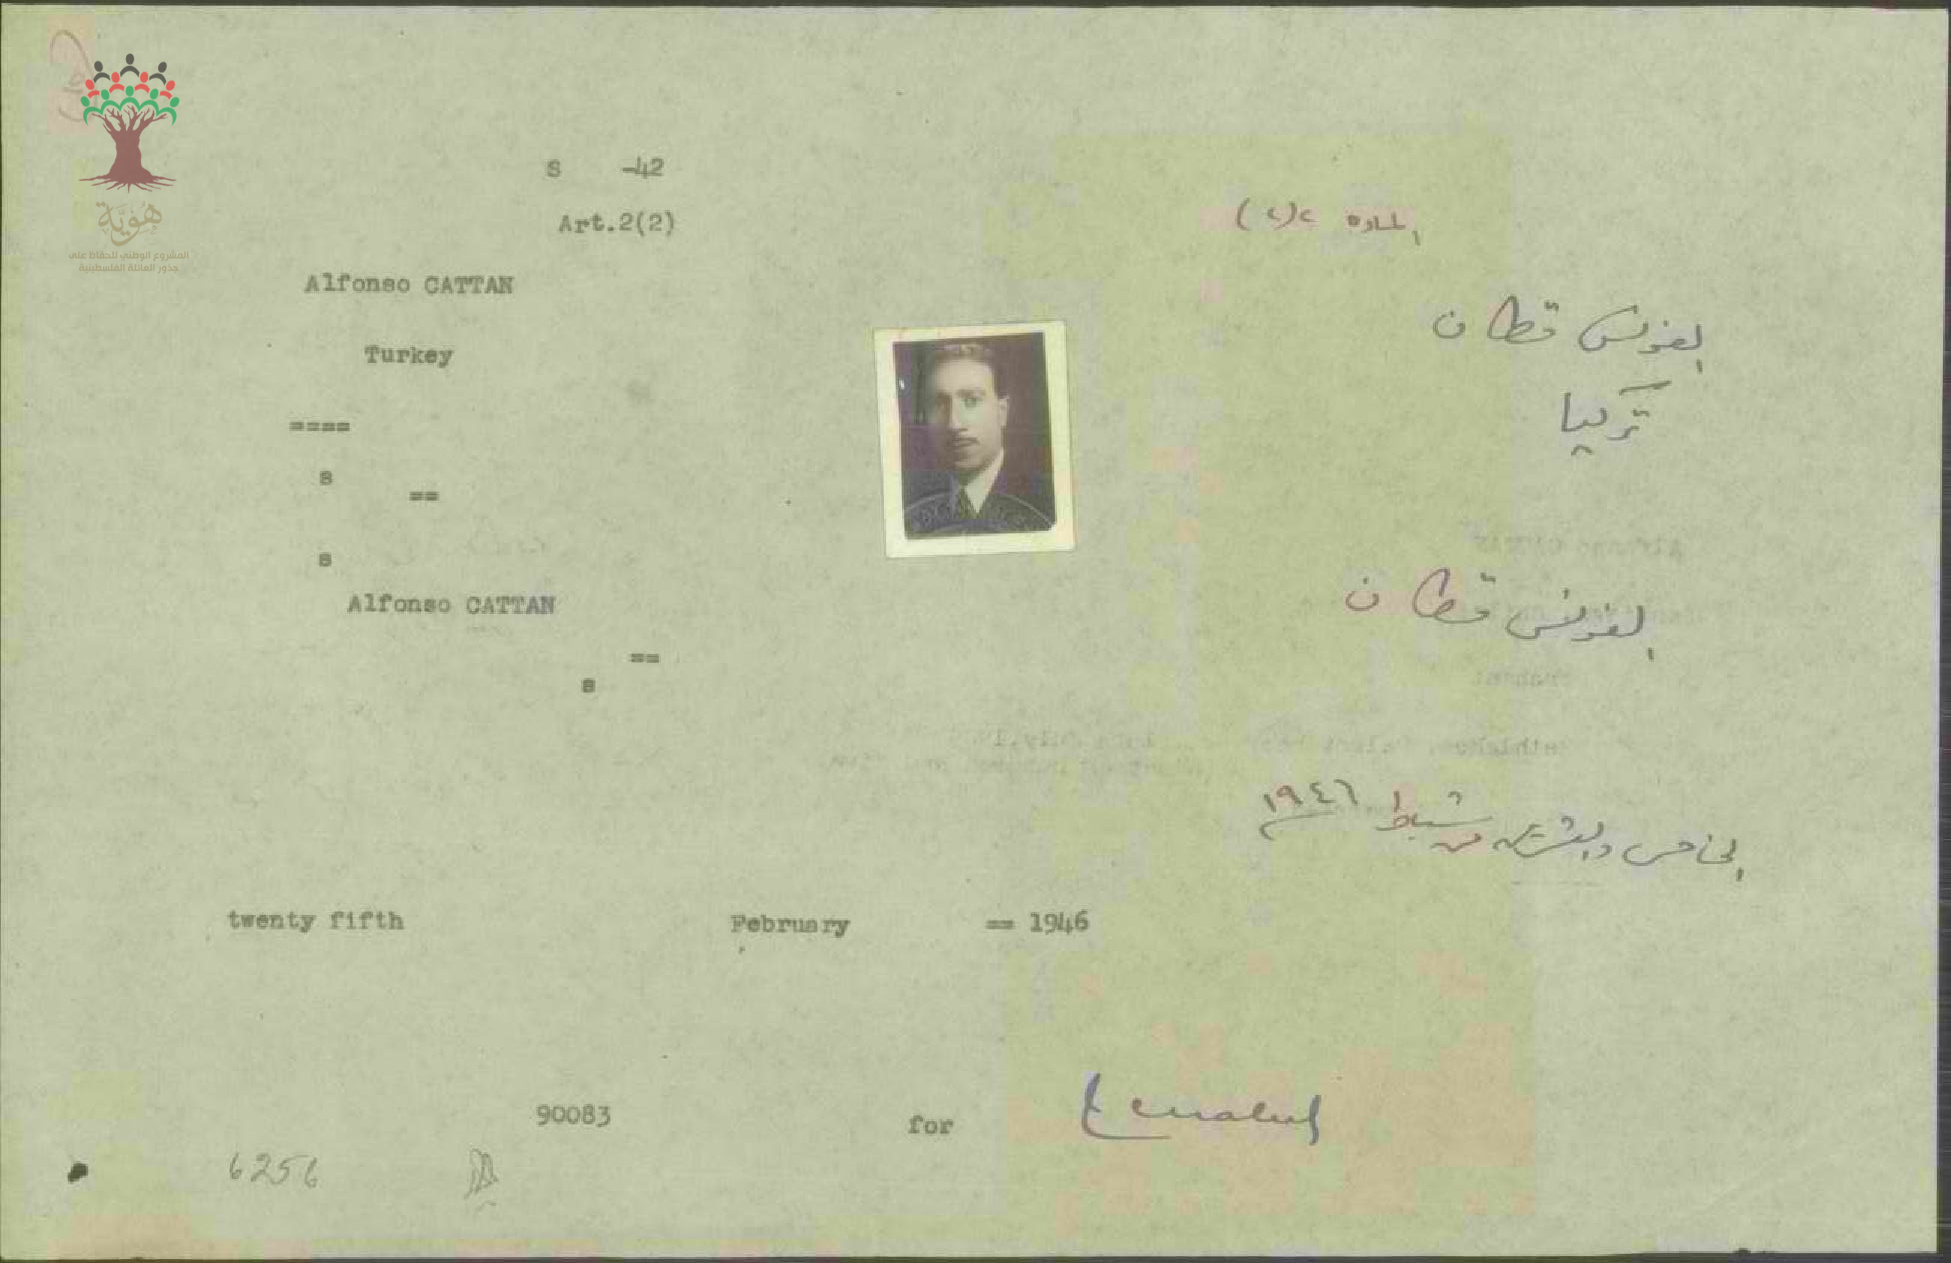 هوية
المشروع الوطني للحفاظ على
جذور العائلة الفلسطينية
S -42
Art.2(2)
المادة ٢(٢)
Alfonso CATTAN
الفونس قطان
Turkey
تركيا
====
s
==
s
Alfonso CATTAN
الفونس قطان
==
s
الخامس والعشرين من شباط ١٩٤٦
twenty fifth February == 1946
90083
for
6256